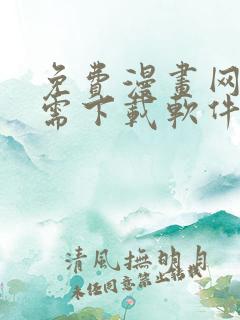 免費漫畫网
需下載軟件
清風撫明月
未经同意禁止转载